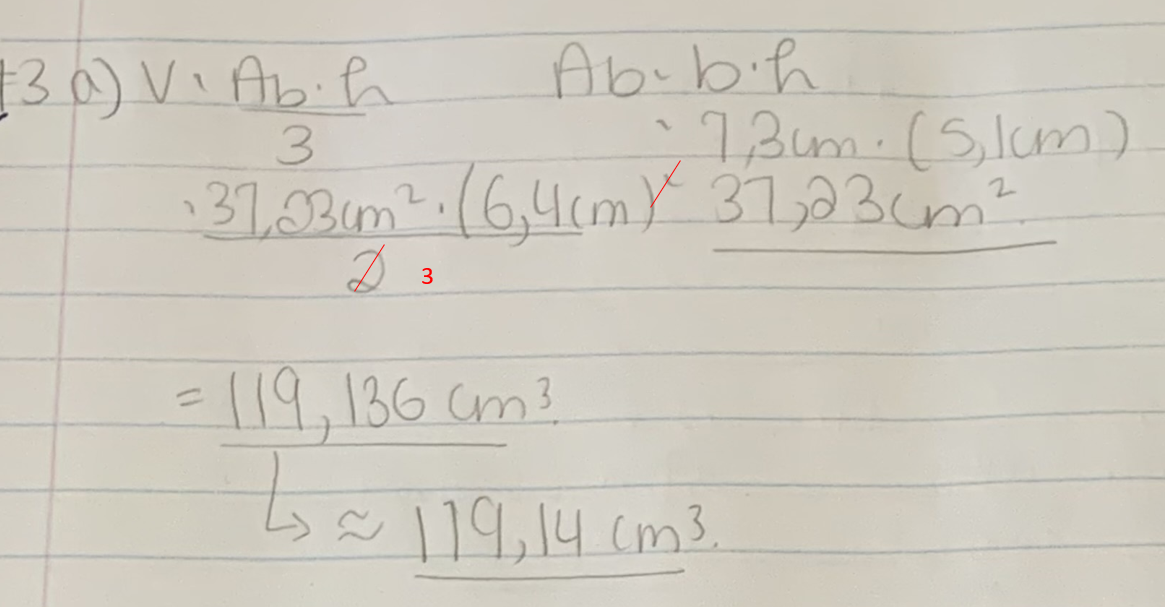 13 a) V = Ab · h Ab = b · h
3 = 7,3cm · (5,1cm)
= 37,23cm² · (6,4cm) = 37,23cm²
2 3
= 119,136 cm³.
↳ ≈ 119,14 cm³.